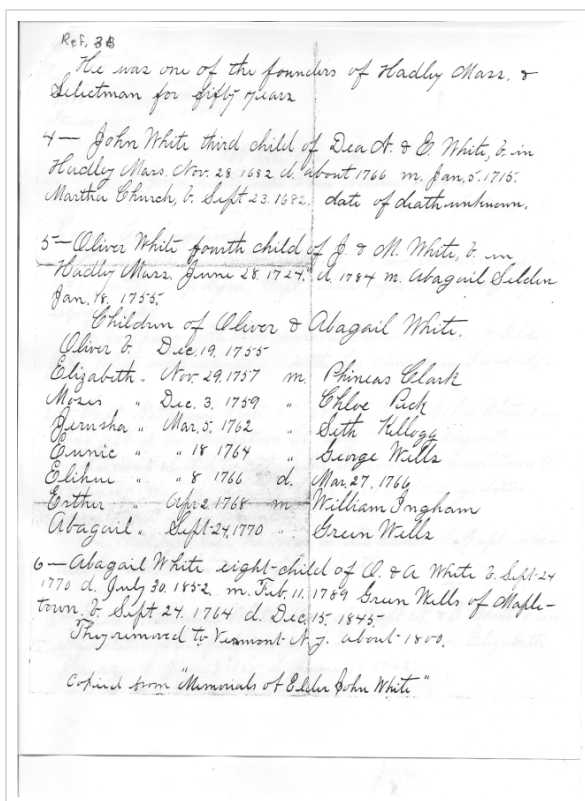 Ref, 3B
He was one of the founders of Hadley Mass, &
Selectman for fifty years
4— John White third child of Dea N. & E. White, b. in
Hadley Mass. Nov. 28 1682 d. about 1766 m. Jan. 5. 1715.
Martha Church, b. Sept 23. 1682. date of death unknown.
5—Oliver White fourth child of J. & M. White, b. in
Hadly Mass, June 28. 1724, d. 1784 m. Abagail Selden
Jan. 18. 1755
Children of Oliver & Abagail White.
Oliver b. Dec. 19. 1755
Elizabeth " Nov. 29. 1757 m. Phineas Clark
Moses " Dec. 3. 1759 " Chloe Peck
Jerusha " Mar. 5. 1762 " Seth Kellogg
Eunic " " 18 1764 " George Wells
Elihue " " 8 1766 d. Mar. 27. 1766
Esther " Apr 2. 1768 m William Ingham
Abagail " Sept-24, 1770 " Green Wells
6—Abagail White eight-child of O. & A White b. Sept-24
1770 d. July 30. 1852. m. Feb. 11. 1789 Green Wells of Maple-
town. b. Sept 24. 1764 d. Dec. 15. 1845-
They removed to Vermont N. Y. about-1800.
Copied from "Memorials of Elder John White"